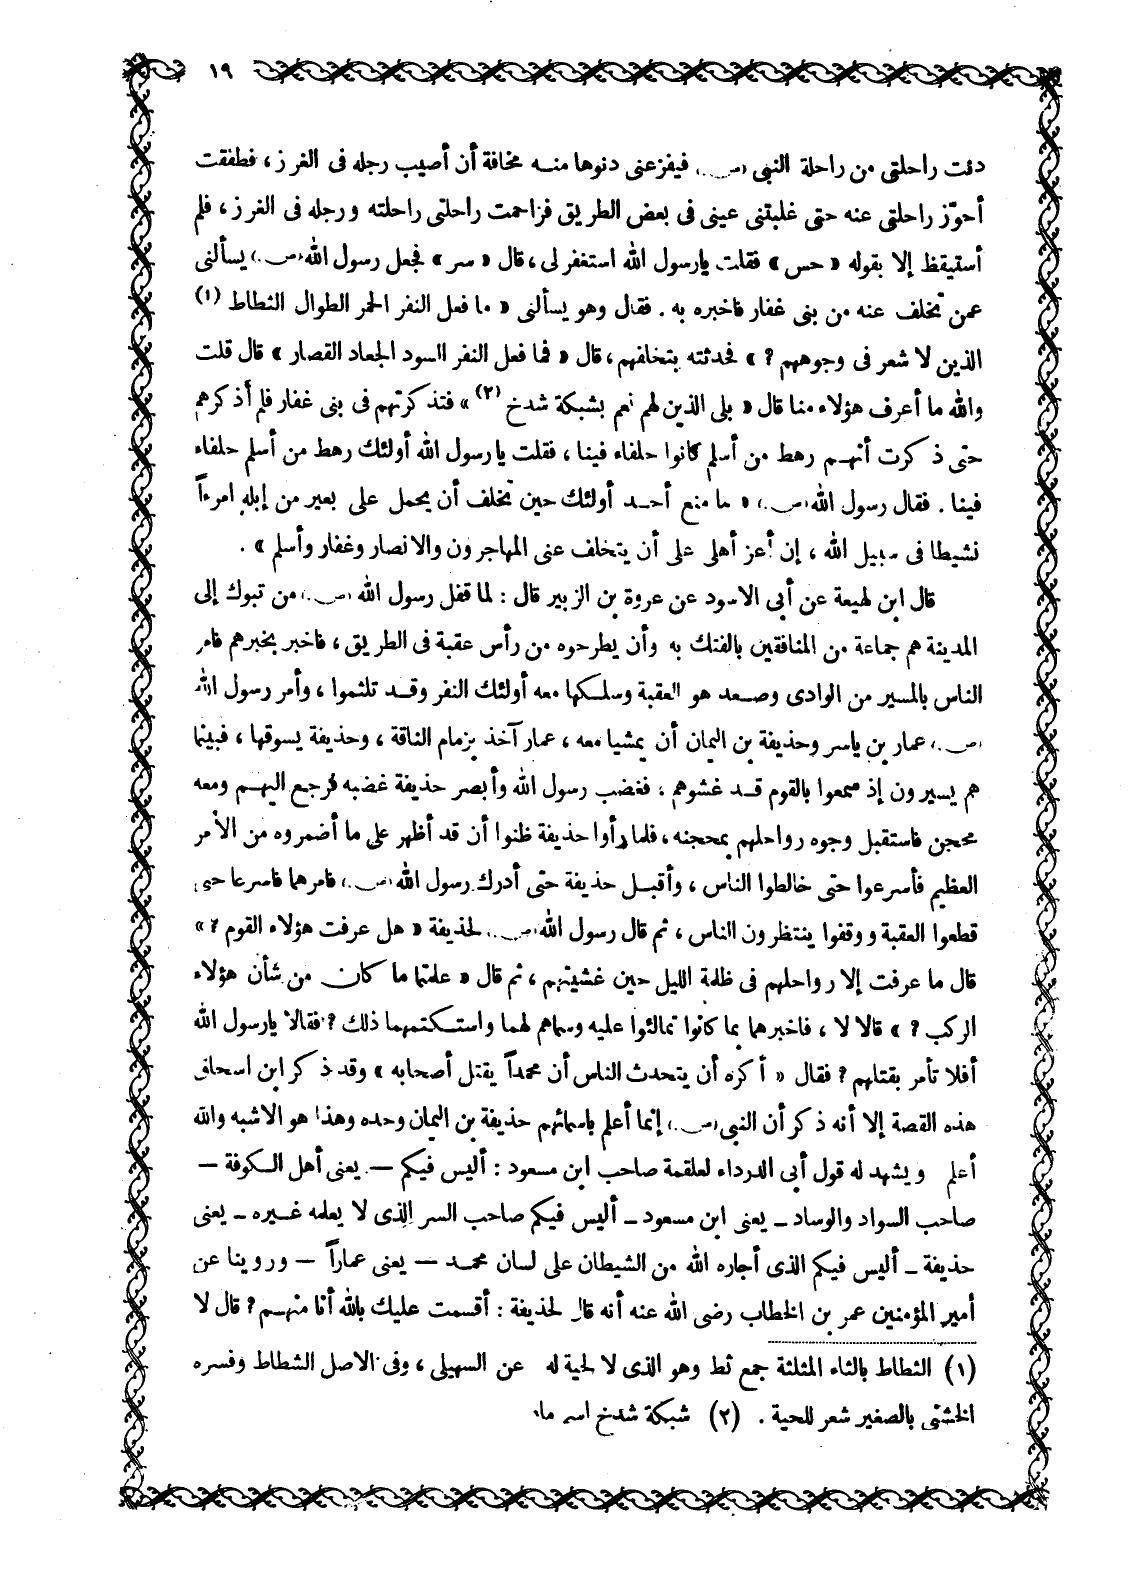 ١٩
دنت راحلتى من راحلة النبى (ص) فيفزعنى دنوها منه مخافة أن أصيب رجله فى الغرز، فطفقت
أحوّز راحلتى عنه حتى غلبتنى عينى فى بعض الطريق فزاحمت راحلتى راحلته ورجله فى الغرز، فلم
أستيقظ إلا بقوله « حس » فقلت يارسول الله استغفر لى، قال « سر » فجعل رسول الله (ص) يسألنى
عمن تخلف عنه من بنى غفار فاخبره به . فقال وهو يسألنى « ما فعل النفر الحمر الطوال الثطاط (١)
الذين لا شعر فى وجوههم ؟ » فحدثته بتخلفهم، قال « فما فعل النفر السود الجعاد القصار » قال قلت
والله ما أعرف هؤلاء منا قال « بلى الذين لهم نعم بشبكة شدخ (٢) » فتذكرتهم فى بنى غفار فلم أذكرهم
حتى ذكرت أنهم رهط من أسلم كانوا حلفاء فينا ، فقلت يارسول الله أولئك رهط من أسلم حلفاء
فينا . فقال رسول الله (ص) « ما منع أحد أولئك حين تخلف أن يحمل على بعير من إبله امرءاً
نشيطا فى سبيل الله ، إن أعز أهلى على أن يتخلف عنى المهاجرون والانصار وغفار وأسلم » .
قال ابن لهيعة عن أبى الاسود عن عروة بن الزبير قال : لما قفل رسول الله (ص) من تبوك إلى
المدينة هم جماعة من المنافقين بالفتك به وأن يطرحوه من رأس عقبة فى الطريق، فاخبر بخبرهم فامر
الناس بالمسير من الوادى وصعد هو العقبة وسلكها معه أولئك النفر وقد تلثموا ، وأمر رسول الله
(ص) عمار بن ياسر وحذيفة بن اليمان أن يمشيا معه ، عمار آخذ بزمام الناقة ، وحذيفة يسوقها ، فبينما
هم يسيرون إذ سمعوا بالقوم قد غشوهم ، فغضب رسول الله وأبصر حذيفة غضبه فرجع اليهم ومعه
محجن فاستقبل وجوه رواحلهم بمحجنه ، فلما رأوا حذيفة ظنوا أن قد أظهر على ما أضمروه من الأمر
العظيم فأسرعوا حتى خالطوا الناس ، وأقبل حذيفة حتى أدرك رسول الله (ص) فامرهما فاسرعا حتى
قطعوا العقبة ووقفوا ينتظرون الناس ، ثم قال رسول الله (ص) لحذيفة « هل عرفت هؤلاء القوم ؟ »
قال ما عرفت إلا رواحلهم فى ظلمة الليل حين غشيتهم ، ثم قال « علمتما ما كان من شأن هؤلاء
الركب ؟ » قالا لا ، فاخبرهما بما كانوا تمالئوا عليه وسماهم لهما واستكتمهما ذلك ؟ فقالا يارسول الله
أفلا تأمر بقتلهم ؟ فقال « أكره أن يتحدث الناس أن محمداً يقتل أصحابه » وقد ذكر ابن اسحاق
هذه القصة إلا أنه ذكر أن النبى (ص) إنما أعلم باسمائهم حذيفة بن اليمان وحده وهذا هو الاشبه والله
أعلم ويشهد له قول أبى الدرداء لعلقمة صاحب ابن مسعود : أليس فيكم — يعنى أهل الكوفة —
صاحب السواد والوساد – يعنى ابن مسعود – أليس فيكم صاحب السر الذى لا يعلمه غيره – يعنى
حذيفة – أليس فيكم الذى أجاره الله من الشيطان على لسان محمد — يعنى عماراً — وروينا عن
أمير المؤمنين عمر بن الخطاب رضى الله عنه أنه قال لحذيفة : أقسمت عليك بالله أنا منهم ؟ قال لا
(١) الثطاط بالثاء المثلثة جمع ثط وهو الذى لا لحية له عن السهيلى ، وفى الاصل الشطاط وفسره
الخشنى بالصغير شعر للحية . (٢) شبكة شدخ اسم ماء